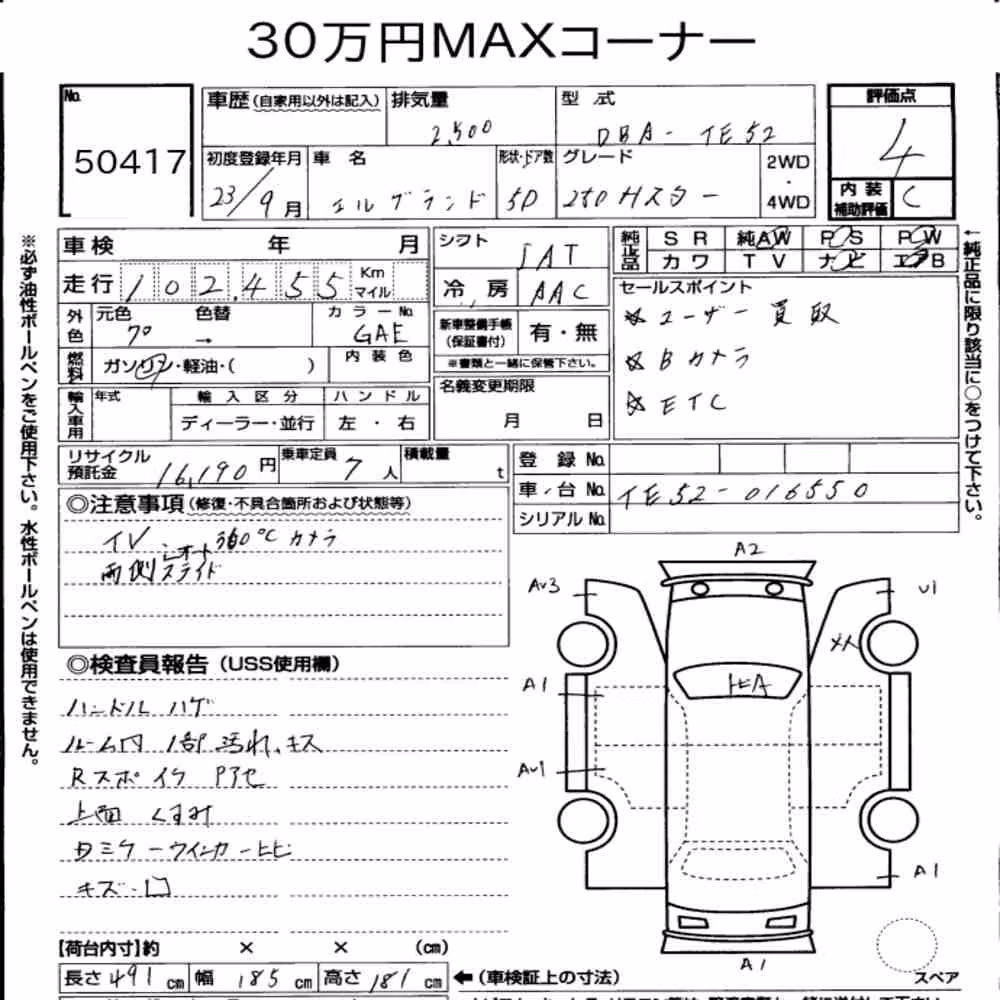 30万円MAXコーナー
No. 50417
車歴 (自家用以外は記入) 排気量 2,500 型式 DBA-TE52
評価点 4
内装補助評価 C
初度登録年月 23/9月 車名 エルグランド 形状・ドア数 5D グレード 250Hスター 2WD・4WD
車検 年 月 シフト IAT
純正品 SR 純AW PS PW
カワ TV ナビ エアB
走行 102,455 Km マイル
冷房 AAC
セールスポイント
☆ユーザー買取
☆Bカメラ
☆ETC
外色 元色 色替 カラーNo. GAE
→
新車整備手帳(保証書付) 有・無
※書類と一緒に保管下さい。
燃料 ガソリン・軽油・( ) 内装色
名義変更期限 月 日
輸入車用 年式 輸入区分 ハンドル
ディーラー・並行 左・右
リサイクル預託金 16,190円 乗車定員 7人 積載量 t
登録No.
車台No. TE52-016550
シリアルNo.
◎注意事項(修復・不具合箇所および状態等)
TV 360℃カメラ
両側オートスライド
◎検査員報告(USS使用欄)
ハンドル ハゲ
ルーム内 1部 汚れ、キス
Rスポイラ Pアセ
上面 くすみ
左ミラーウインカーヒビ
キズ・凹
A2
Av3
U1
メん
A1
Av1
A1
A1
スペア
【荷台内寸】約 × × (cm)
長さ 491 cm 幅 185 cm 高さ 181 cm ←(車検証上の寸法)
※必ず油性ボールペンをご使用下さい。水性ボールペンは使用できません。
←純正品に限り該当に○をつけて下さい。